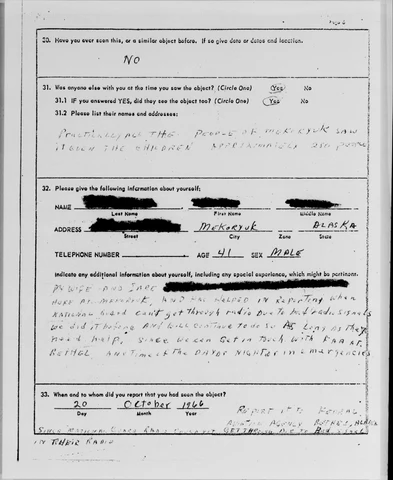 Page 6
30. Have you ever seen this, or a similar object before. If so give date or dates and location.
NO
31. Was anyone else with you at the time you saw the object? (Circle One) Yes No
31.1 IF you answered YES, did they see the object too? (Circle One) Yes No
31.2 Please list their names and addresses:
PRACTICALLY ALL THE PEOPLE OF MEKORYUK SAW
IT EVEN THE CHILDREN APPROXIMATELY 250 people
32. Please give the following information about yourself:
NAME
Last Name First Name Middle Name
ADDRESS MEKORYUK ALASKA
Street City Zone State
TELEPHONE NUMBER AGE 41 SEX MALE
Indicate any additional information about yourself, including any special experience, which might be pertinent.
MY WIFE AND I ARE
HERE AT MEKORYUK, AND HAS HELPED IN REPORTING when
NATIONAL Guard can't get through radio Due to bad radio signals
we did it before AND will continue to do so AS LONG AS they
need help, since we can Get in touch with FAA AT
BETHEL ANY time of the DAY OR NIGHT FOR EMERGENCIES
33. When and to whom did you report that you had seen the object?
20 October 1966
Day Month Year
Report it to FEDERAL
AVIATION AGENCY BETHEL, ALASKA
SINCE NATIONAL GUARD GET THROUGH DUE TO BAD
IN THEIR RADIO